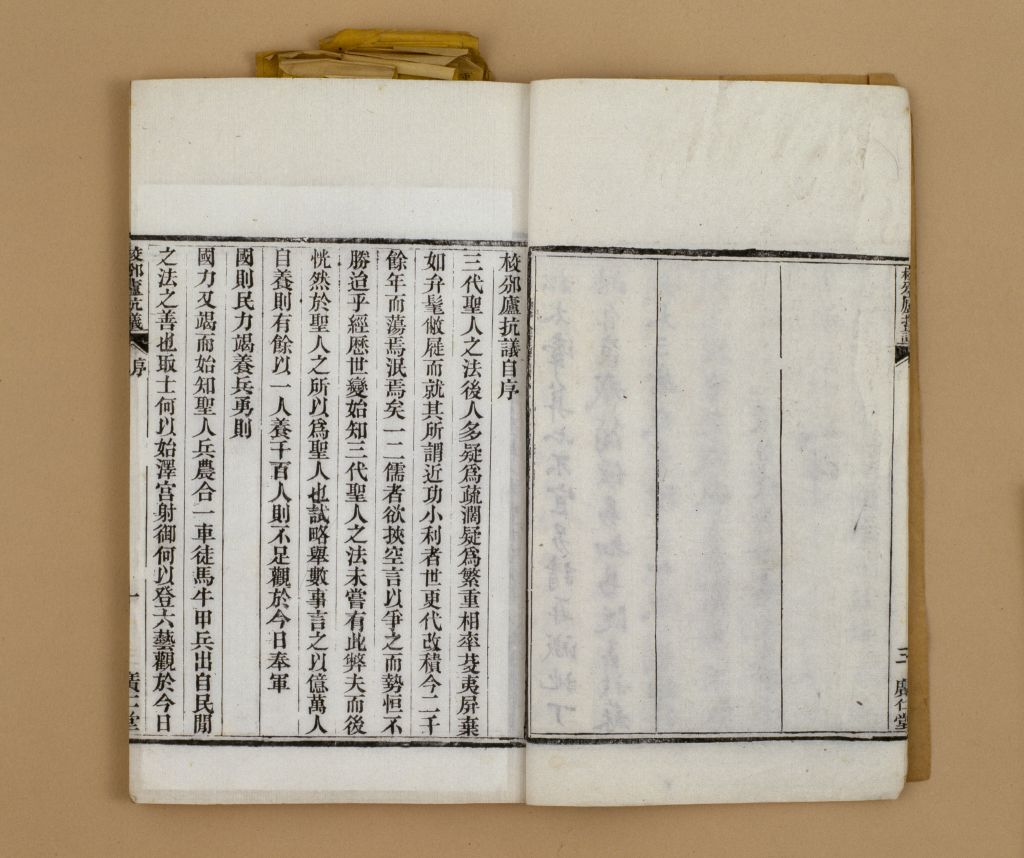 三 廣仁堂
校邠廬抗議自序
三代聖人之法後人多疑爲疏濶疑爲繁重相率芟夷屏棄
如弁髦敝屣而就其所謂近功小利者世更代改積今二千
餘年而蕩焉泯焉矣一二儒者欲挾空言以爭之而勢恒不
勝迨乎經歴世變始知三代聖人之法未嘗有此弊夫而後
恍然於聖人之所以爲聖人也試略舉數事言之以億萬人
自養則有餘以一人養千百人則不足觀於今日奉軍
國則民力竭養兵勇則
國力又竭而始知聖人兵農合一車徒馬牛甲兵出自民閒
之法之善也取士何以始澤宫射御何以登六藝觀於今日
校邠廬抗議 序 一 廣仁堂